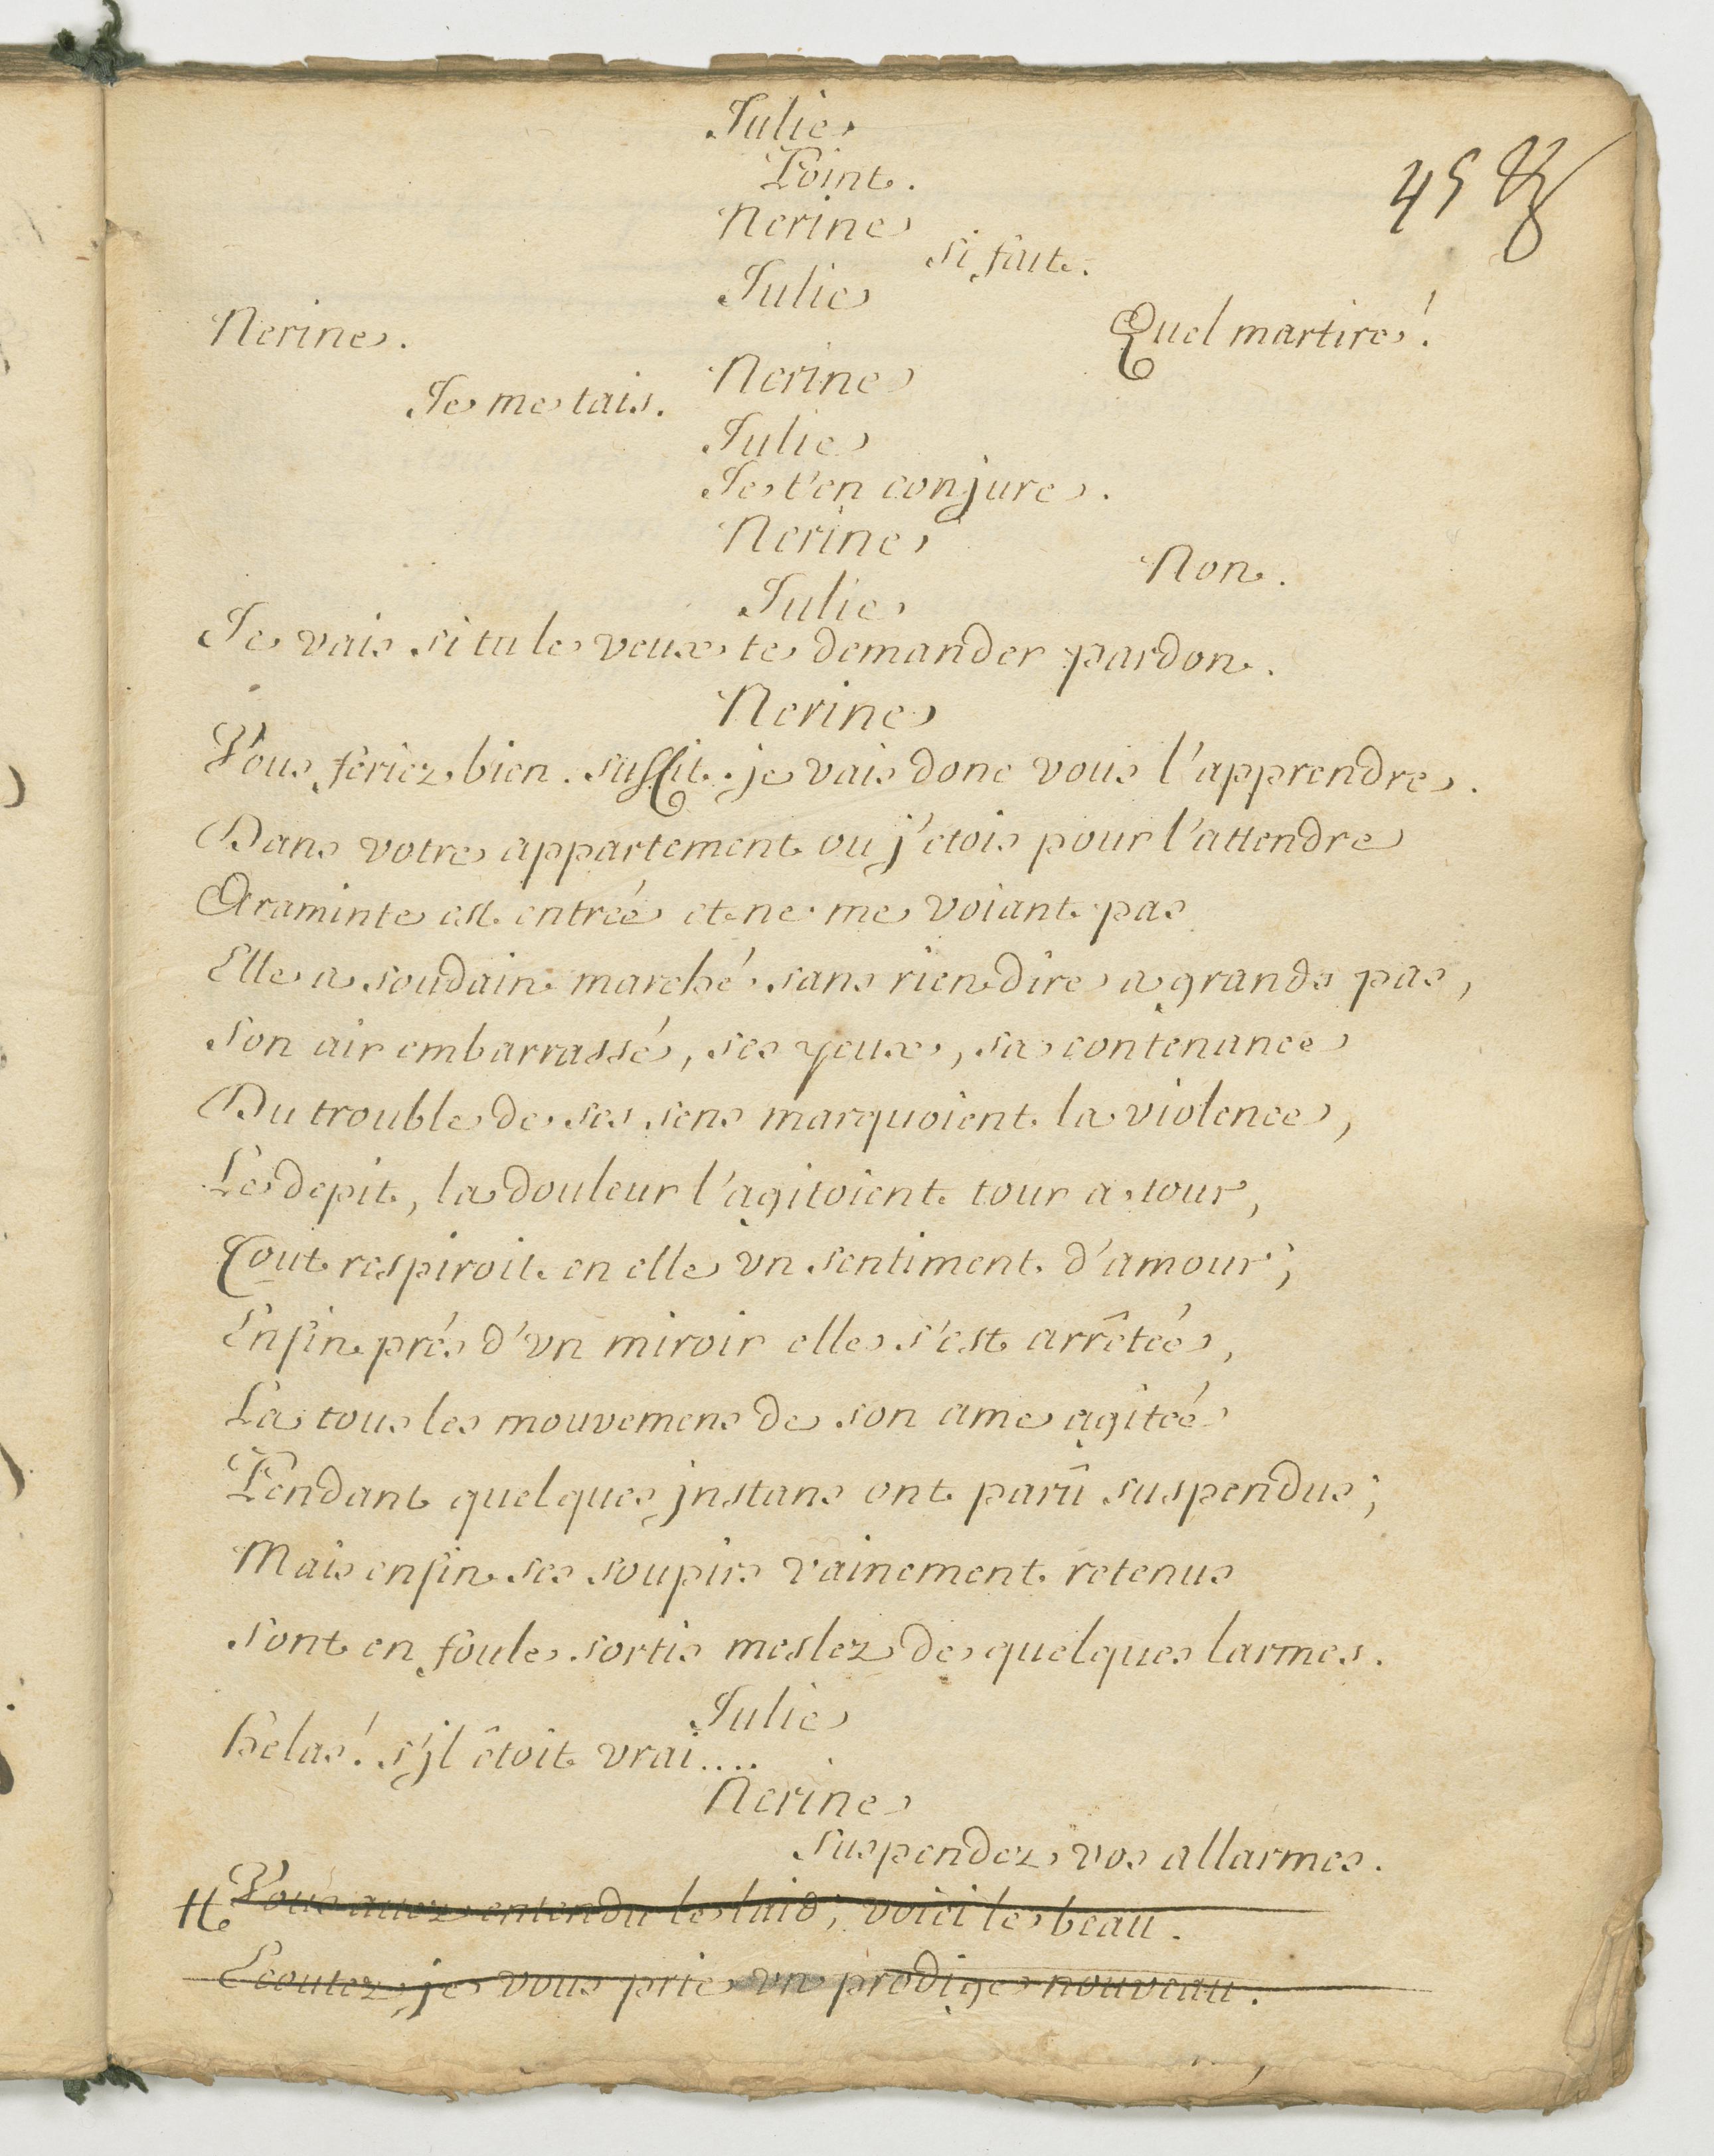 Julie
Point.
45
Nerine
si fait.
Julie
Quel martire!
Nerine.
Nerine
Je me tais.
Julie
Je t'en conjure.
Nerine
Non.
Julie
Je vais si tu le veux te demander pardon.
Nerine
Vous feriez bien. suffit. je vais donc vous l'apprendre.
Dans votre appartement ou j'etois pour l'attendre
Araminte est entreé et ne me voiant pas
Elle a soudain marché sans rien dire a grands pas,
Son air embarrassé, ses yeux, sa contenance
Du trouble de ses sens marquoient la violence,
Le depit, la douleur l'agitoient tour a tour,
Tout respiroit en elle vn sentiment d'amour;
Enfin prés d'vn miroir elle s'est arrêteé,
La tous les mouvemens de son ame agiteé
Pendant quelques jnstans ont parû suspendus;
Mais enfin ses soupirs vainement retenus
Sont en foule sortis meslez de quelques larmes.
Julie
helas! s'jl êtoit vrai....
Nerine
Suspendez vos allarmes.
Vous auez entendu le laid, voici le beau.
Ecoutez, je vous prie vn prodige nouveau.